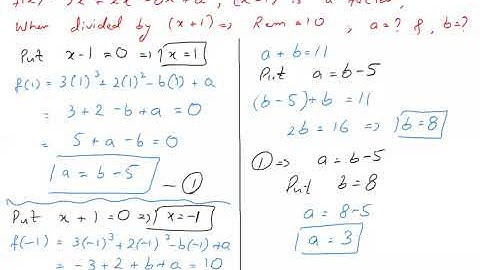 When divided by (x+1) => Rem = 10 , a=? & b=?
Put x-1=0 => x=1
f(1) = 3(1)³+2(1)²-b(1)+a
= 3+2-b+a=0
= 5+a-b=0
a = b-5 — ①
Put x+1=0 => x=-1
f(-1) = 3(-1)³+2(-1)²-b(-1)+a
= -3+2+b+a=10
a+b=11
Put a=b-5
(b-5)+b=11
2b=16 => b=8
① => a=b-5
Put b=8
a=8-5
a=3